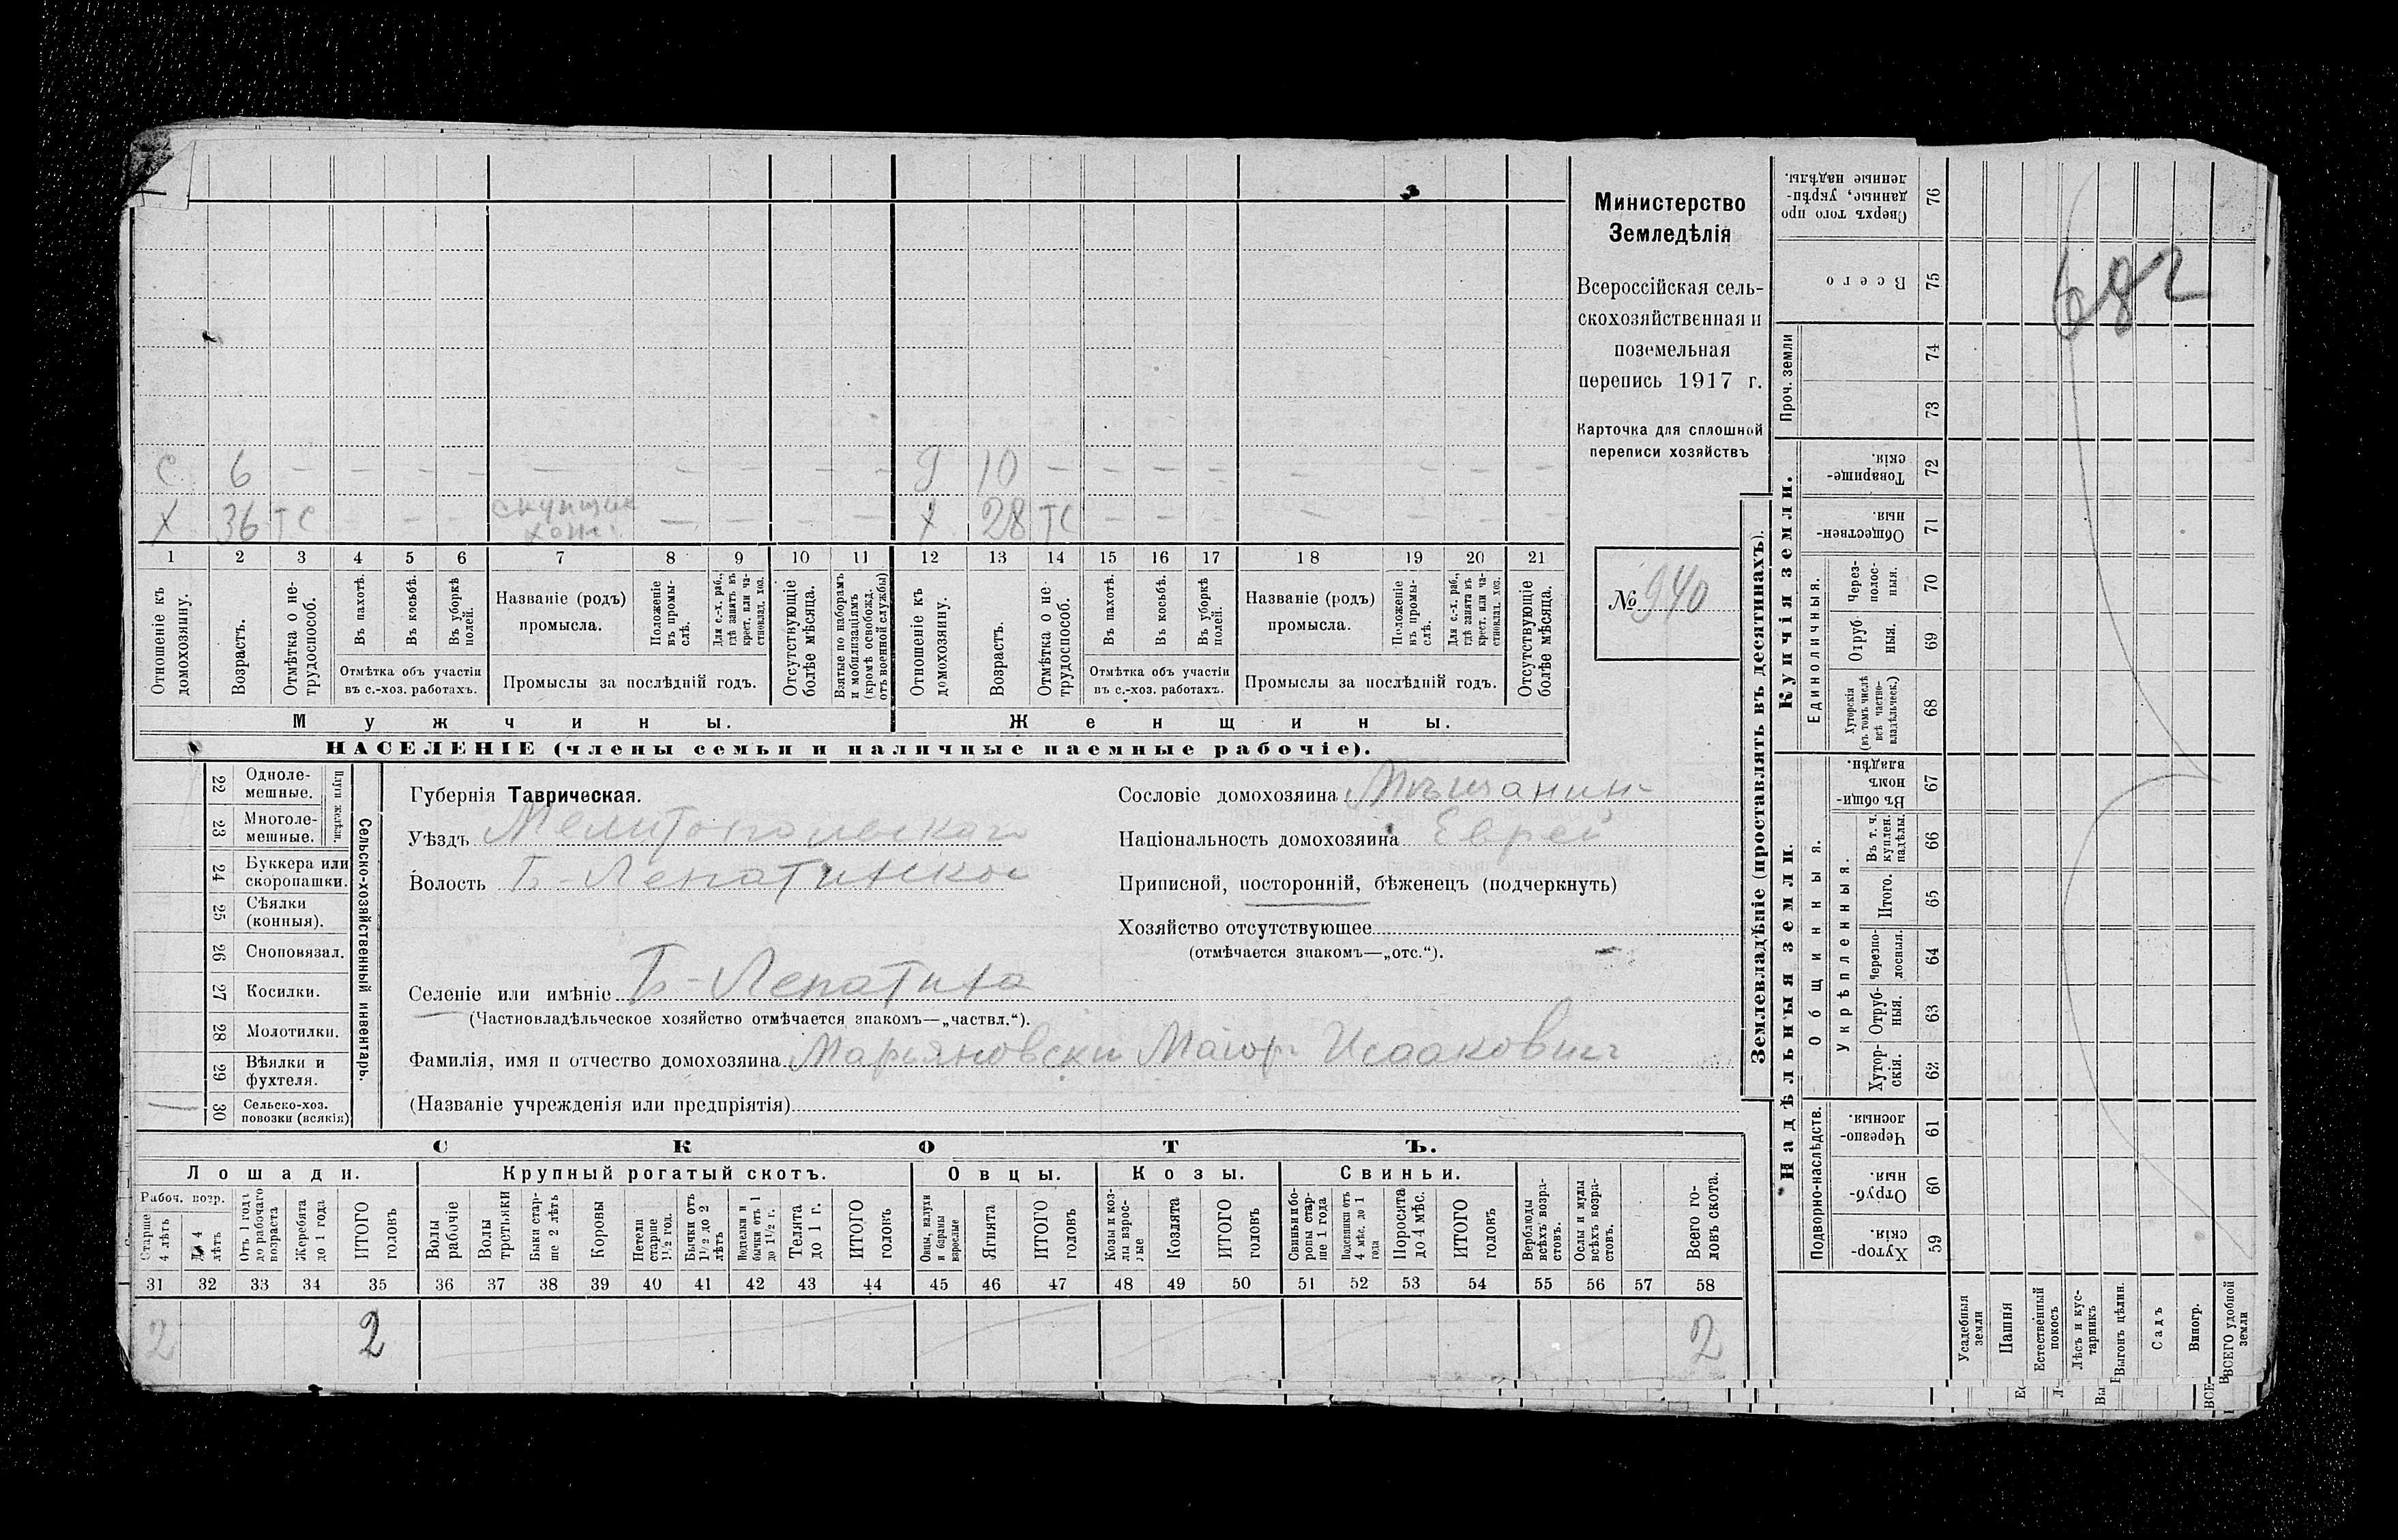 Министерство
Земледѣлія
Всероссійская сель-
скохозяйственная и
поземельная
перепись 1917 г.
Карточка для сплошной
переписи хозяйствъ
№ 940
С 6 – – – – – – – – – 10 – – – – – – – –
Х 36 ТС – – – скупщик – – – – Х 28 ТС – – – – – – –
1 2 3 4 5 6 7 8 9 10 11 12 13 14 15 16 17 18 19 20 21
Отношеніе къ домохозяину.
Возрастъ.
Отмѣтка о не-трудоспособ.
Въ пахотѣ.
Въ косьбѣ.
Въ уборкѣ полей.
Отмѣтка объ участіи
въ с.-хоз. работахъ.
Названіе (родъ)
промысла.
Положеніе въ промы-слѣ.
Для с.-х. раб., гдѣ занятъ въ крест. или ча-стновлад. хоз.
Промыслы за послѣдній годъ.
Отсутствующіе болѣе мѣсяца.
Взятые по наборамъ и мобилизаціямъ (кромѣ освобожд. отъ военной службы)
Отношеніе къ домохозяину.
Возрастъ.
Отмѣтка о не-трудоспособ.
Въ пахотѣ.
Въ косьбѣ.
Въ уборкѣ полей.
Отмѣтка объ участіи
въ с.-хоз. работахъ.
Названіе (родъ)
промысла.
Положеніе въ промы-слѣ.
Для с.-х. раб., гдѣ занята въ крест. или ча-стновлад. хоз.
Промыслы за послѣдній годъ.
Отсутствующіе болѣе мѣсяца.
Мужчины. Женщины.
НАСЕЛЕНІЕ (члены семьи и наличные наемные рабочіе).
22 Одноле-мешные.
23 Многоле-мешные.
24 Буккера или скоропашки.
25 Сѣялки (конныя).
26 Сноповязал.
27 Косилки.
28 Молотилки.
29 Вѣялки и фухтеля.
30 Сельско-хоз. повозки (всякія)
Сельско-хозяйственный инвентарь.
Губернія Таврическая.
Уѣздъ Мелитопольскаго
Волость Б-Лепатинской
Селеніе или имѣніе Б-Лепатиха
(Частновладѣльческое хозяйство отмѣчается знакомъ—„частвл.“).
Фамилія, имя и отчество домохозяина Марьяновски Маіор Исаакович
(Названіе учрежденія или предпріятія)
Сословіе домохозяина Мѣщанин
Національность домохозяина Еврей
Приписной, посторонній, бѣженецъ (подчеркнуть)
Хозяйство отсутствующее
(отмѣчается знакомъ—„отс.“).
СКОТЪ.
Лошади. Крупный рогатый скотъ. Овцы. Козы. Свиньи.
Рабоч. возр.
Старше 4 лѣтъ
До 4 лѣтъ
Отъ 1 года до рабочаго возраста
Жеребята до 1 года
ИТОГО головъ
Волы рабочіе
Волы третьяки
Быки стар-ше 2 лѣтъ
Коровы
Нетели старше 1½ год.
Бычки отъ 1½ до 2 лѣтъ
Нетелки и бычки отъ 1 до 1½ г.
Телята до 1 г.
ИТОГО головъ
Овцы, валухи и бараны взрослые
Ягнята
ИТОГО головъ
Козы и коз-лы взрос-лые
Козлята
ИТОГО головъ
Свиньи и бо-ровы стар-ше 1 года
Подсвинки отъ 4 мѣс. до 1 года
Поросята до 4 мѣс.
ИТОГО головъ
Верблюды всѣхъ возра-стовъ.
Ослы и мулы всѣхъ возра-стовъ.
Всего го-ловъ скота.
31 32 33 34 35 36 37 38 39 40 41 42 43 44 45 46 47 48 49 50 51 52 53 54 55 56 57 58
2 2 2
Землевладѣніе (проставлять въ десятинахъ).
Купчія земли.
Надѣльныя земли.
76 Сверхъ того про-данные, укрѣп-ленные надѣлы.
75 Всего
Проч. земли
74
73
72 Товарище-скія.
71 Обществен-ныя.
Единоличныя.
70 Через-полос-ныя.
69 Отруб-ныя.
68 Хуторскія (въ томъ числѣ всѣ частно-владѣльческ.)
67 Въ общи-номъ владѣн.
Общинныя.
Укрѣпленныя.
66 Въ т. ч. куплен. надѣлы.
65 Итого.
64 Черезпо-лосныя.
63 Отруб-ныя.
62 Хутор-скія.
Подворно-наслѣдств.
61 Черезпо-лосныя.
60 Отруб-ныя.
59 Хутор-скія.
Усадебныя земли
Пашня
Естественный покосъ
Лѣсъ и кус-тарникъ
Выгонъ цѣлин.
Садъ
Виногр.
ВСЕГО удобной земли
682